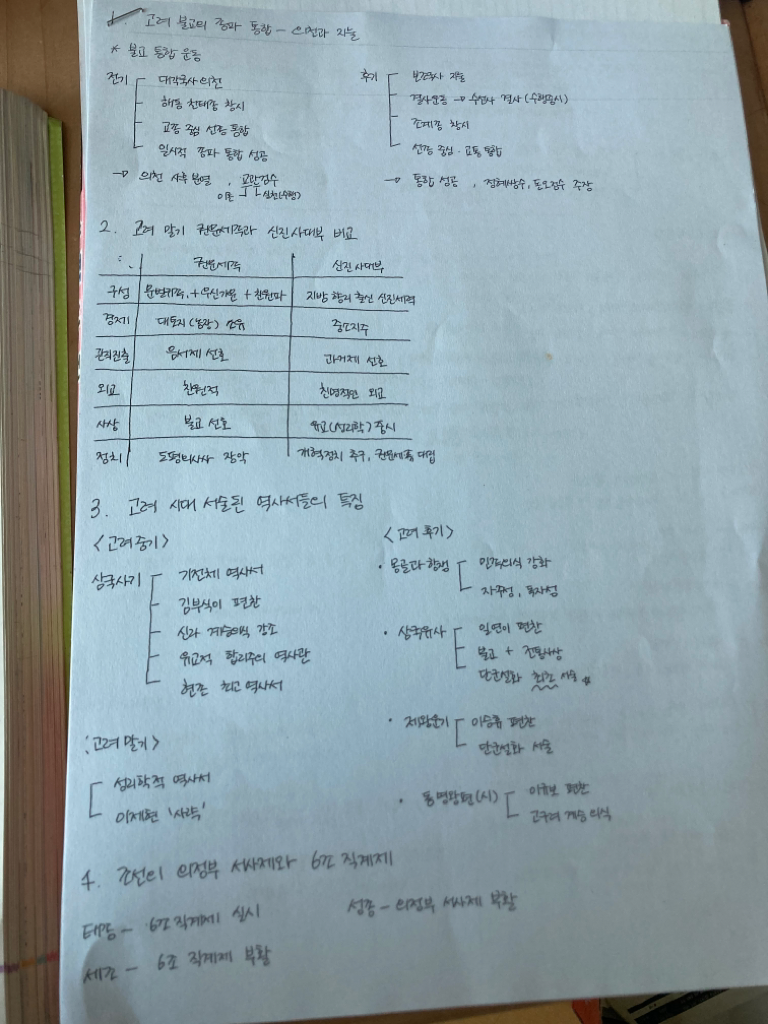 1. 고려 불교의 종파 통합 - 의천과 지눌
* 불교 통합 운동
전기
대각국사 의천
해동 천태종 창시
교종 중심 선종 통합
일시적 종파 통합 성공
→ 의천 사후 분열, 교관겸수
이론 실천(수행)
후기
보조국사 지눌
결사운동 → 수선사 결사 (수행중시)
조계종 창시
선종 중심·교종 통합
→ 통합 성공, 정혜쌍수, 돈오점수 주장
2. 고려 말기 권문세족과 신진사대부 비교
권문세족 신진사대부
구성 문벌귀족, + 무신가문 + 친원파 지방 향리 출신 신진세력
경제 대토지(농장) 소유 중소지주
관직진출 음서제 선호 과거제 선호
외교 친원적 친명적인 외교
사상 불교 선호 유교(성리학) 중시
정치 도평의사사 장악 개혁정치 추구, 권문세족 대립
3. 고려 시대 서술된 역사서들의 특징
<고려중기>
삼국사기
기전체 역사서
김부식이 편찬
신라 계승의식 강조
유교적 합리주의 역사관
현존 최고 역사서
<고려 후기>
· 몽골과 항쟁
민족의식 강화
자주성, 독자성
· 삼국유사
일연이 편찬
불교 + 전통사상
단군설화 최초 서술
· 제왕운기
이승휴 편찬
단군설화 서술
· 동명왕편(시)
이규보 편찬
고구려 계승 의식
<고려 말기>
성리학적 역사서
이제현 '사략'
4. 조선의 의정부 서사제와 6조 직계제
태종 - 6조 직계제 실시
성종 - 의정부 서사제 부활
세조 - 6조 직계제 부활